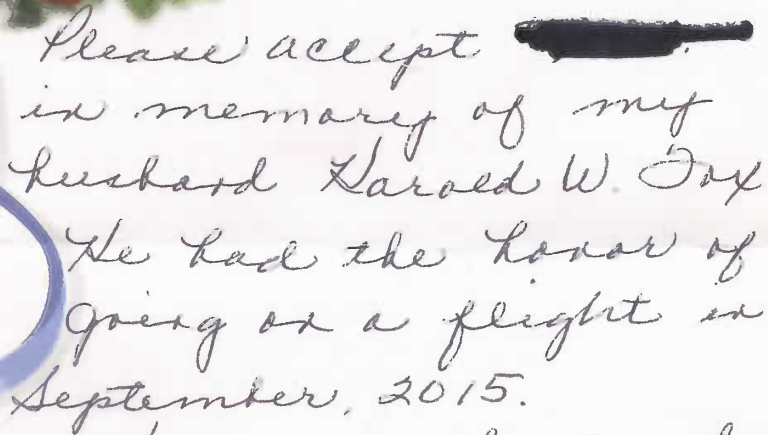 Please accept
in memory of my
husband Harold W. Fox
He had the honor of
going on a flight in
September, 2015.